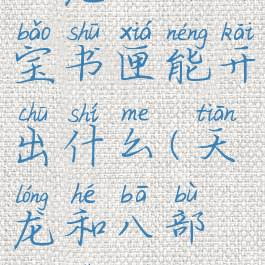 bǎo shū xiá néng kāi
宝书匣能开
chū shí me tiān
出什么(天
lóng hé bā bù
龙和八部